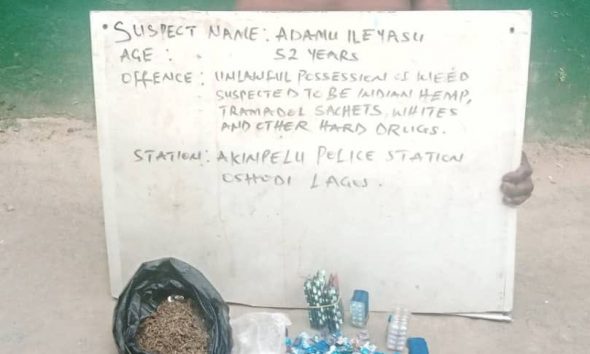 SUSPECT NAME: ADAMU ILEYASU
AGE: 52 YEARS
OFFENCE: UNLAWFUL POSSESSION OF WEED
SUSPECTED TO BE INDIAN HEMP,
TRAMADOL SACHETS, WHITES
AND OTHER HARD DRUGS.
STATION: AKINPELU POLICE STATION
OSHODI LAGOS.